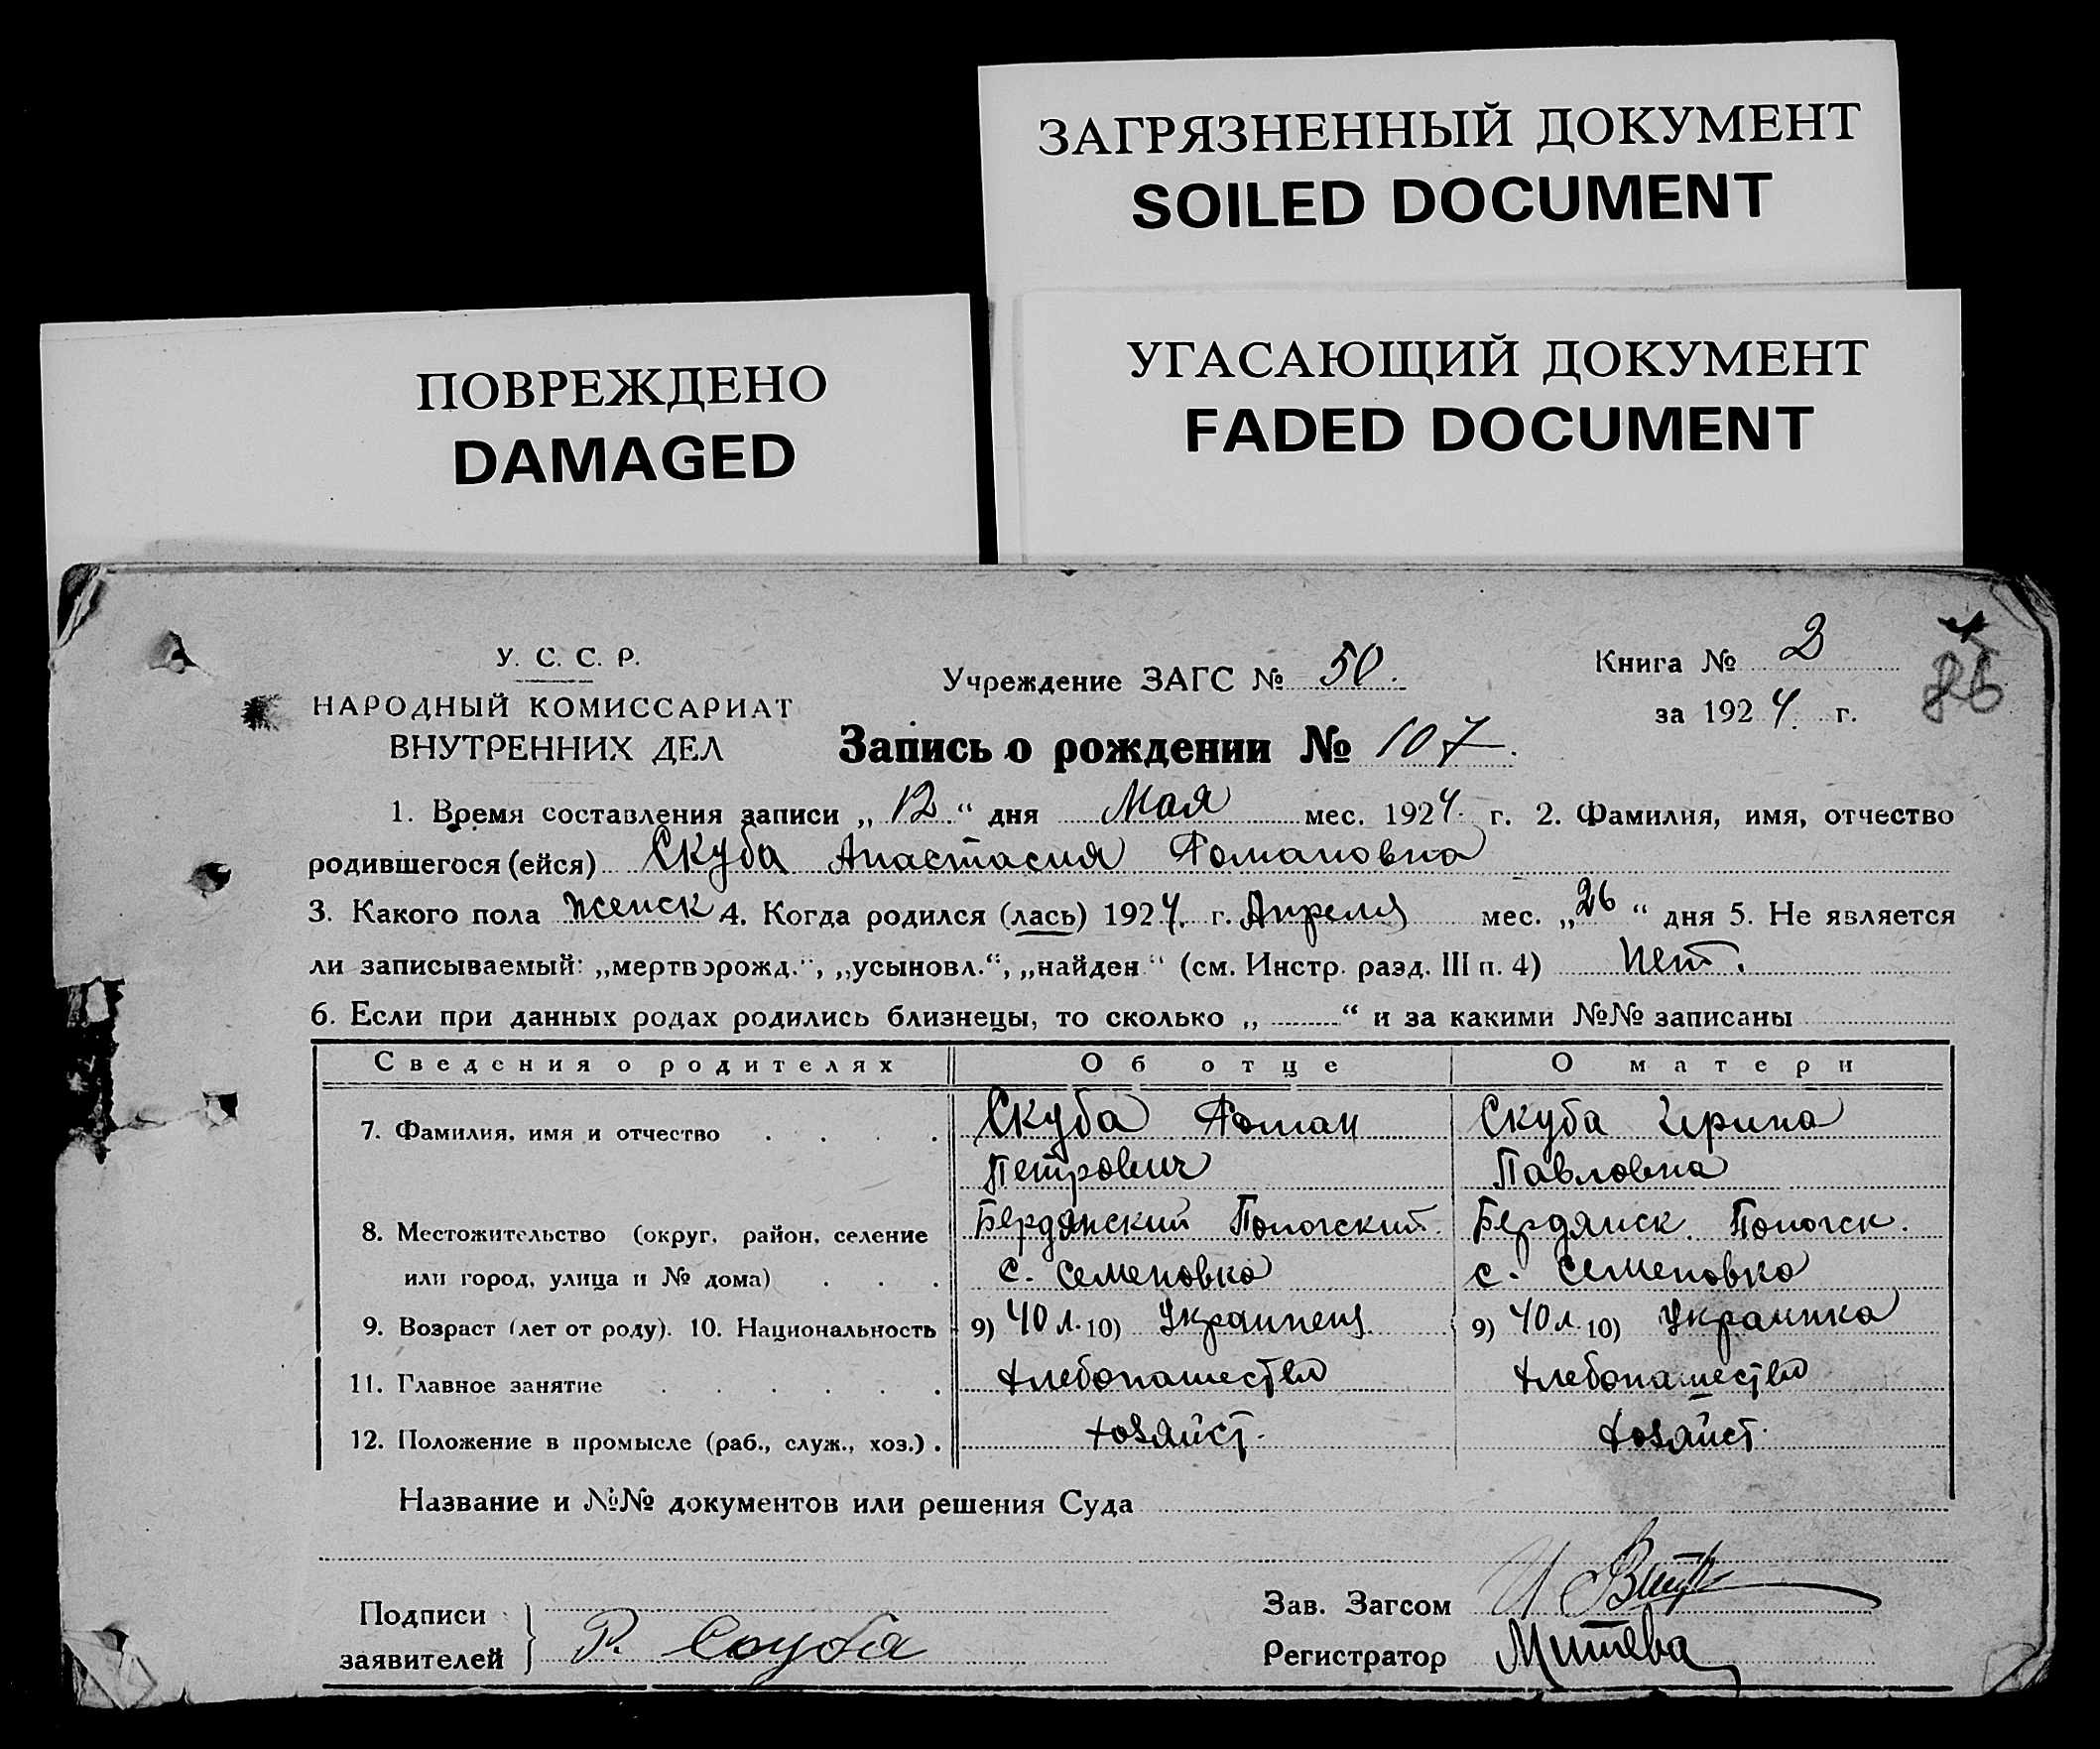 ЗАГРЯЗНЕННЫЙ ДОКУМЕНТ
SOILED DOCUMENT
ПОВРЕЖДЕНО
DAMAGED
УГАСАЮЩИЙ ДОКУМЕНТ
FADED DOCUMENT
У. С. С. Р.
НАРОДНЫЙ КОМИССАРИАТ
ВНУТРЕННИХ ДЕЛ
Учреждение ЗАГС № 50.
Книга № 2
за 1924 г.
86
Запись о рождении № 107.
1. Время составления записи „12“ дня Мая мес. 1924 г. 2. Фамилия, имя, отчество
родившегося (ейся) Скуба Анастасия Романовна
3. Какого пола женск 4. Когда родился (лась) 1924 г. Апреля мес. „26“ дня 5. Не является
ли записываемый: „мертворожд.“, „усыновл.“, „найден“ (см. Инстр. разд. III п. 4) Нет.
6. Если при данных родах родились близнецы, то сколько „ “ и за какими №№ записаны
Сведения о родителях Об отце О матери
7. Фамилия, имя и отчество Скуба Роман Скуба Ирина
Петрович Павловна
8. Местожительство (округ, район, селение Бердянский Пологский Бердянск. Пологск.
или город, улица и № дома) с. Семеновка с. Семеновка
9. Возраст (лет от роду). 10. Национальность 9) 40 л. 10) Украинец 9) 40 л. 10) Украинка
11. Главное занятие Хлебопашество Хлебопашество
12. Положение в промысле (раб., служ., хоз.) хозяйст. хозяйст.
Название и №№ документов или решения Суда
Подписи
заявителей Р. Скуба
Зав. Загсом
Регистратор